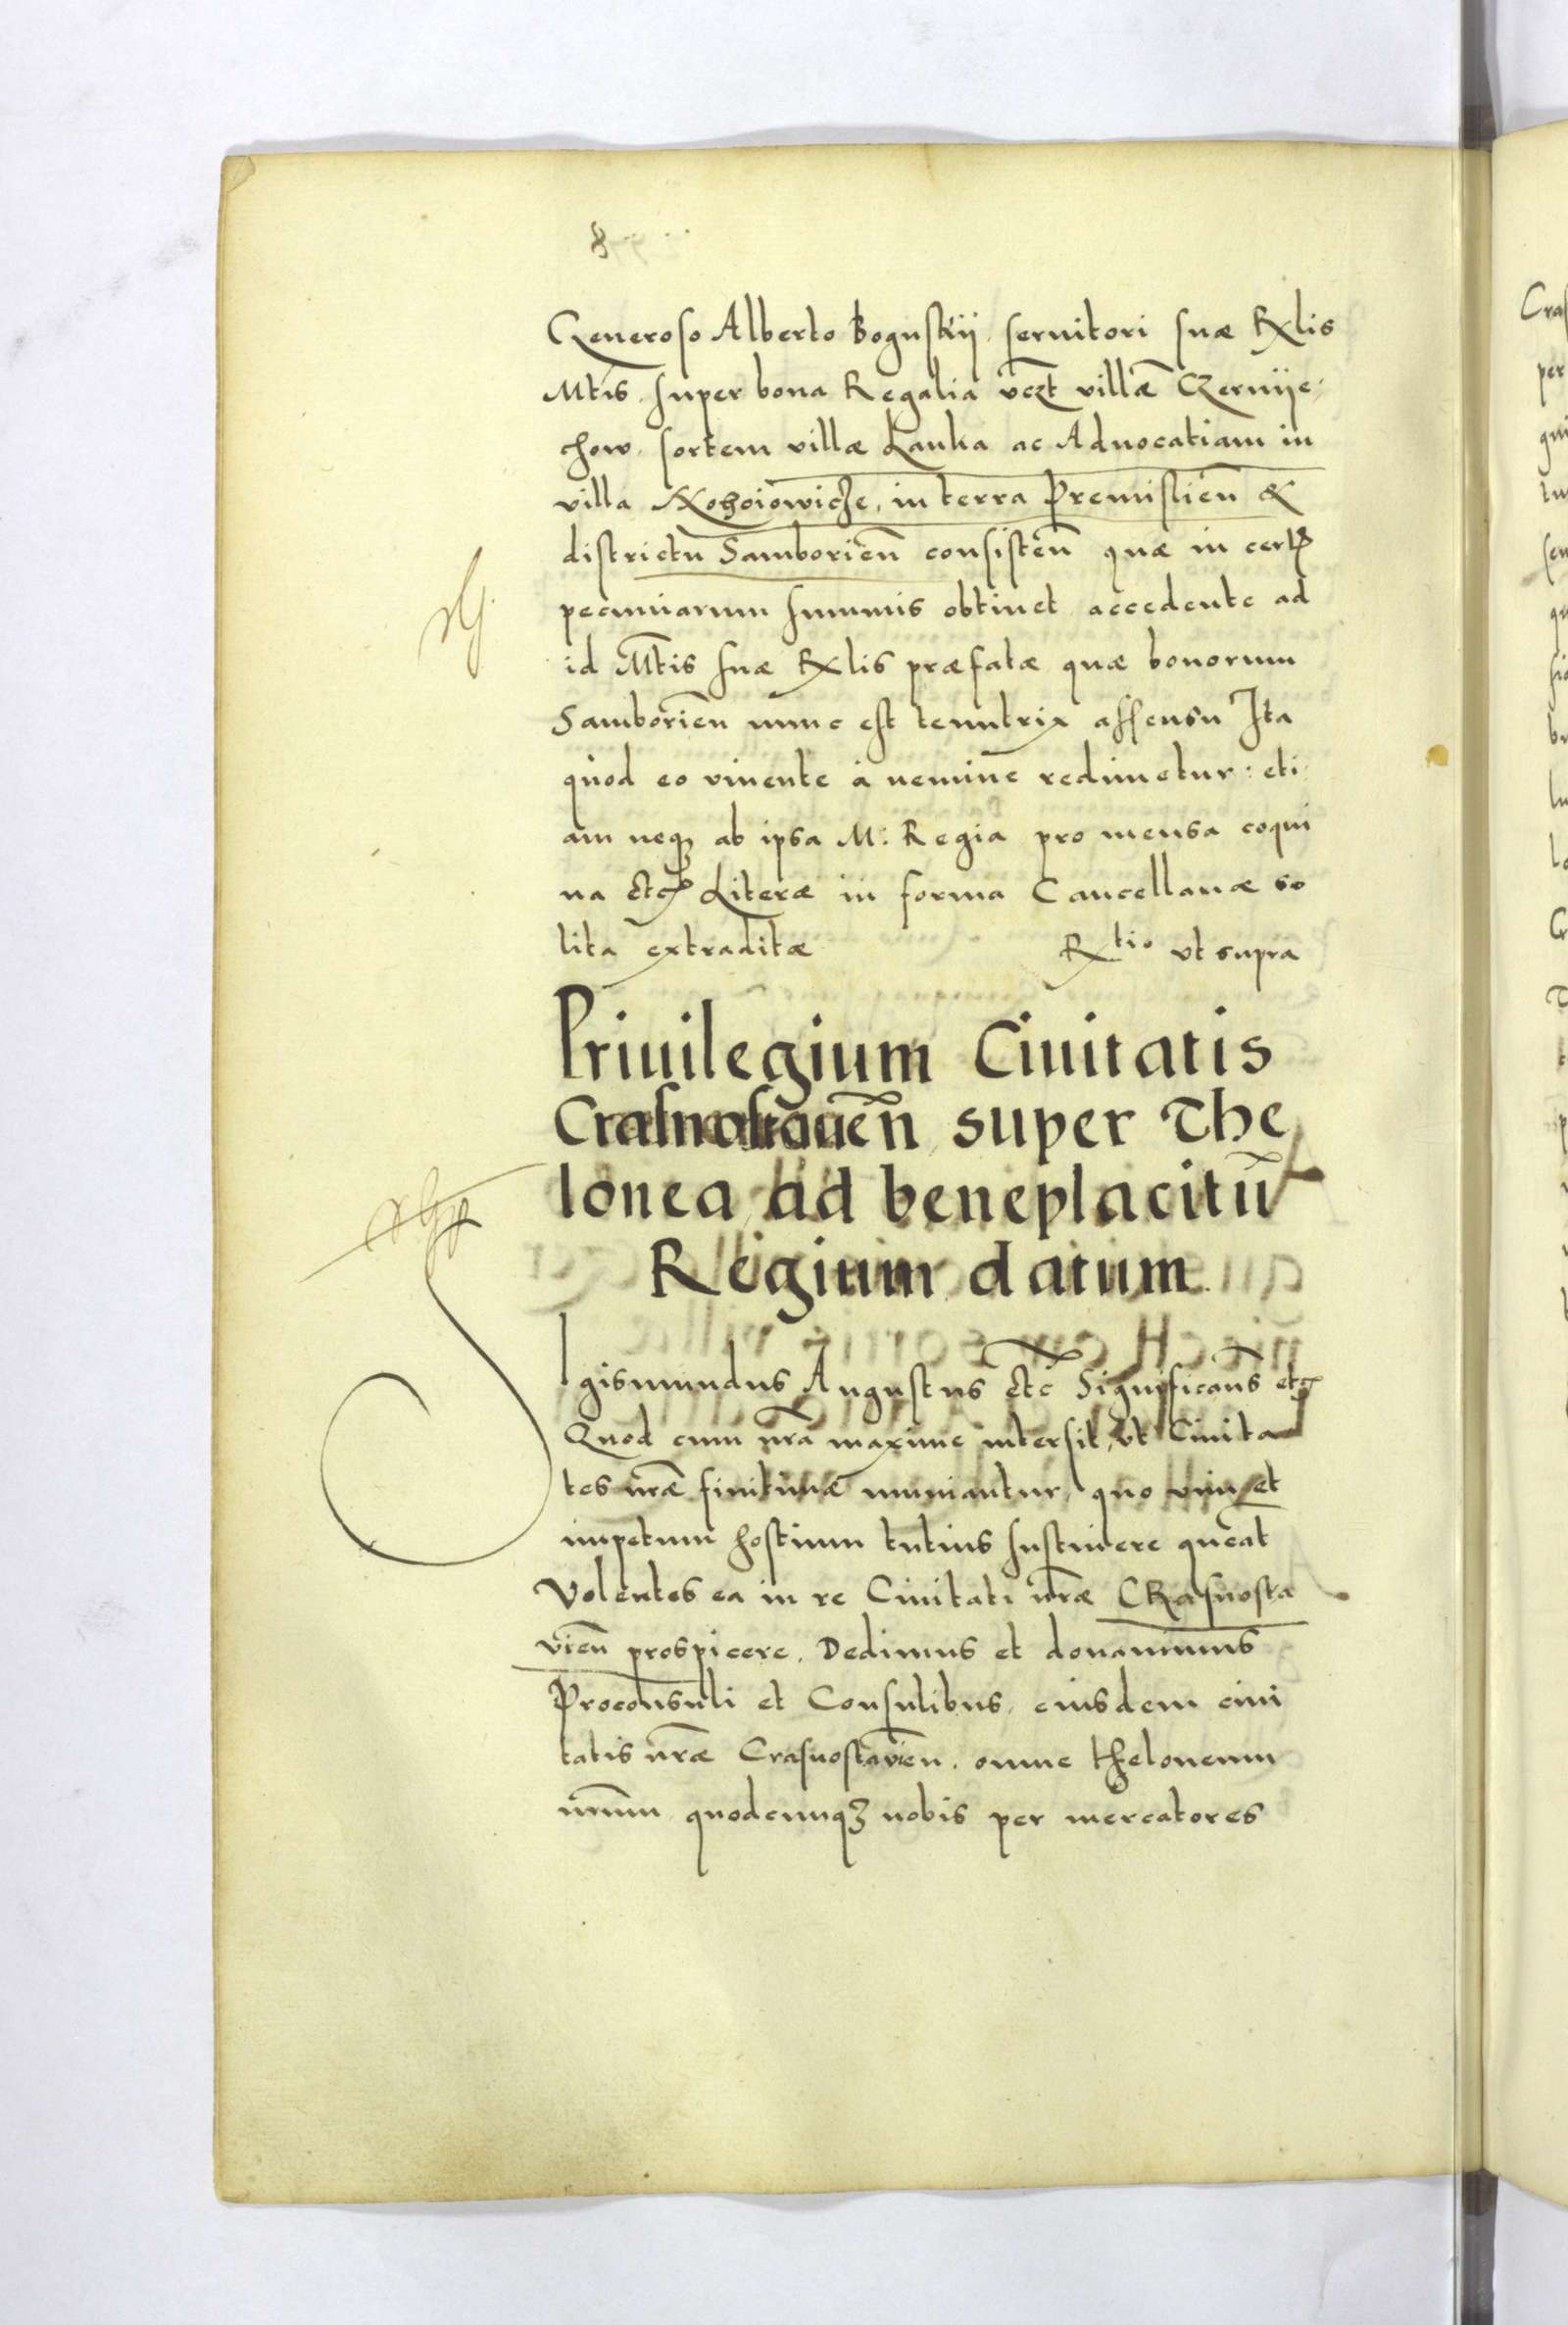 8
Generoso Alberto Boguskÿ. seruitori suæ Rlis
Mtis. super bona Regalia vczt villā Czernÿe-
chow. sortem villæ Lanka ac Aduocatiam in
villa, in terra Premislien̄ &
districtu Samborien̄ consisten̄ quæ in certꝭ
pecuniarum summis obtinet accedente ad
id Mtis suæ Rlis præfatæ quæ bonorum
Samborien̄ nunc est tenutrix assensu Ita
quod eo viuente à nemine redimetur: eti-
am neqꝫ ab ipsa M: Regia pro mensa coqui
na etcꝭ Literæ in forma Cancellariæ so
lita extraditæ Rtio vt supra
Priuilegium Ciuitatis
Crasnostauien̄ super The
lonea ad beneplacitū
Regium datum
Igismundus Augustus etc̄ Significam̄s etcꝭ
Quod cum nr̄a maxime intersit, vt Ciuita
tes nr̄æ finitimæ muniantur, quo vim et
impetum hostium tutius sustinere queāt
Volentes ea in re Ciuitati nr̄æ CRasnosta
vien̄ prospicere. Dedimus et donauimus
Proconsuli et Consulibus. eiusdem ciui
tatis nr̄æ Crasnostauien̄. omne theloneum
nr̄um quodcunqꝫ nobis per mercatores